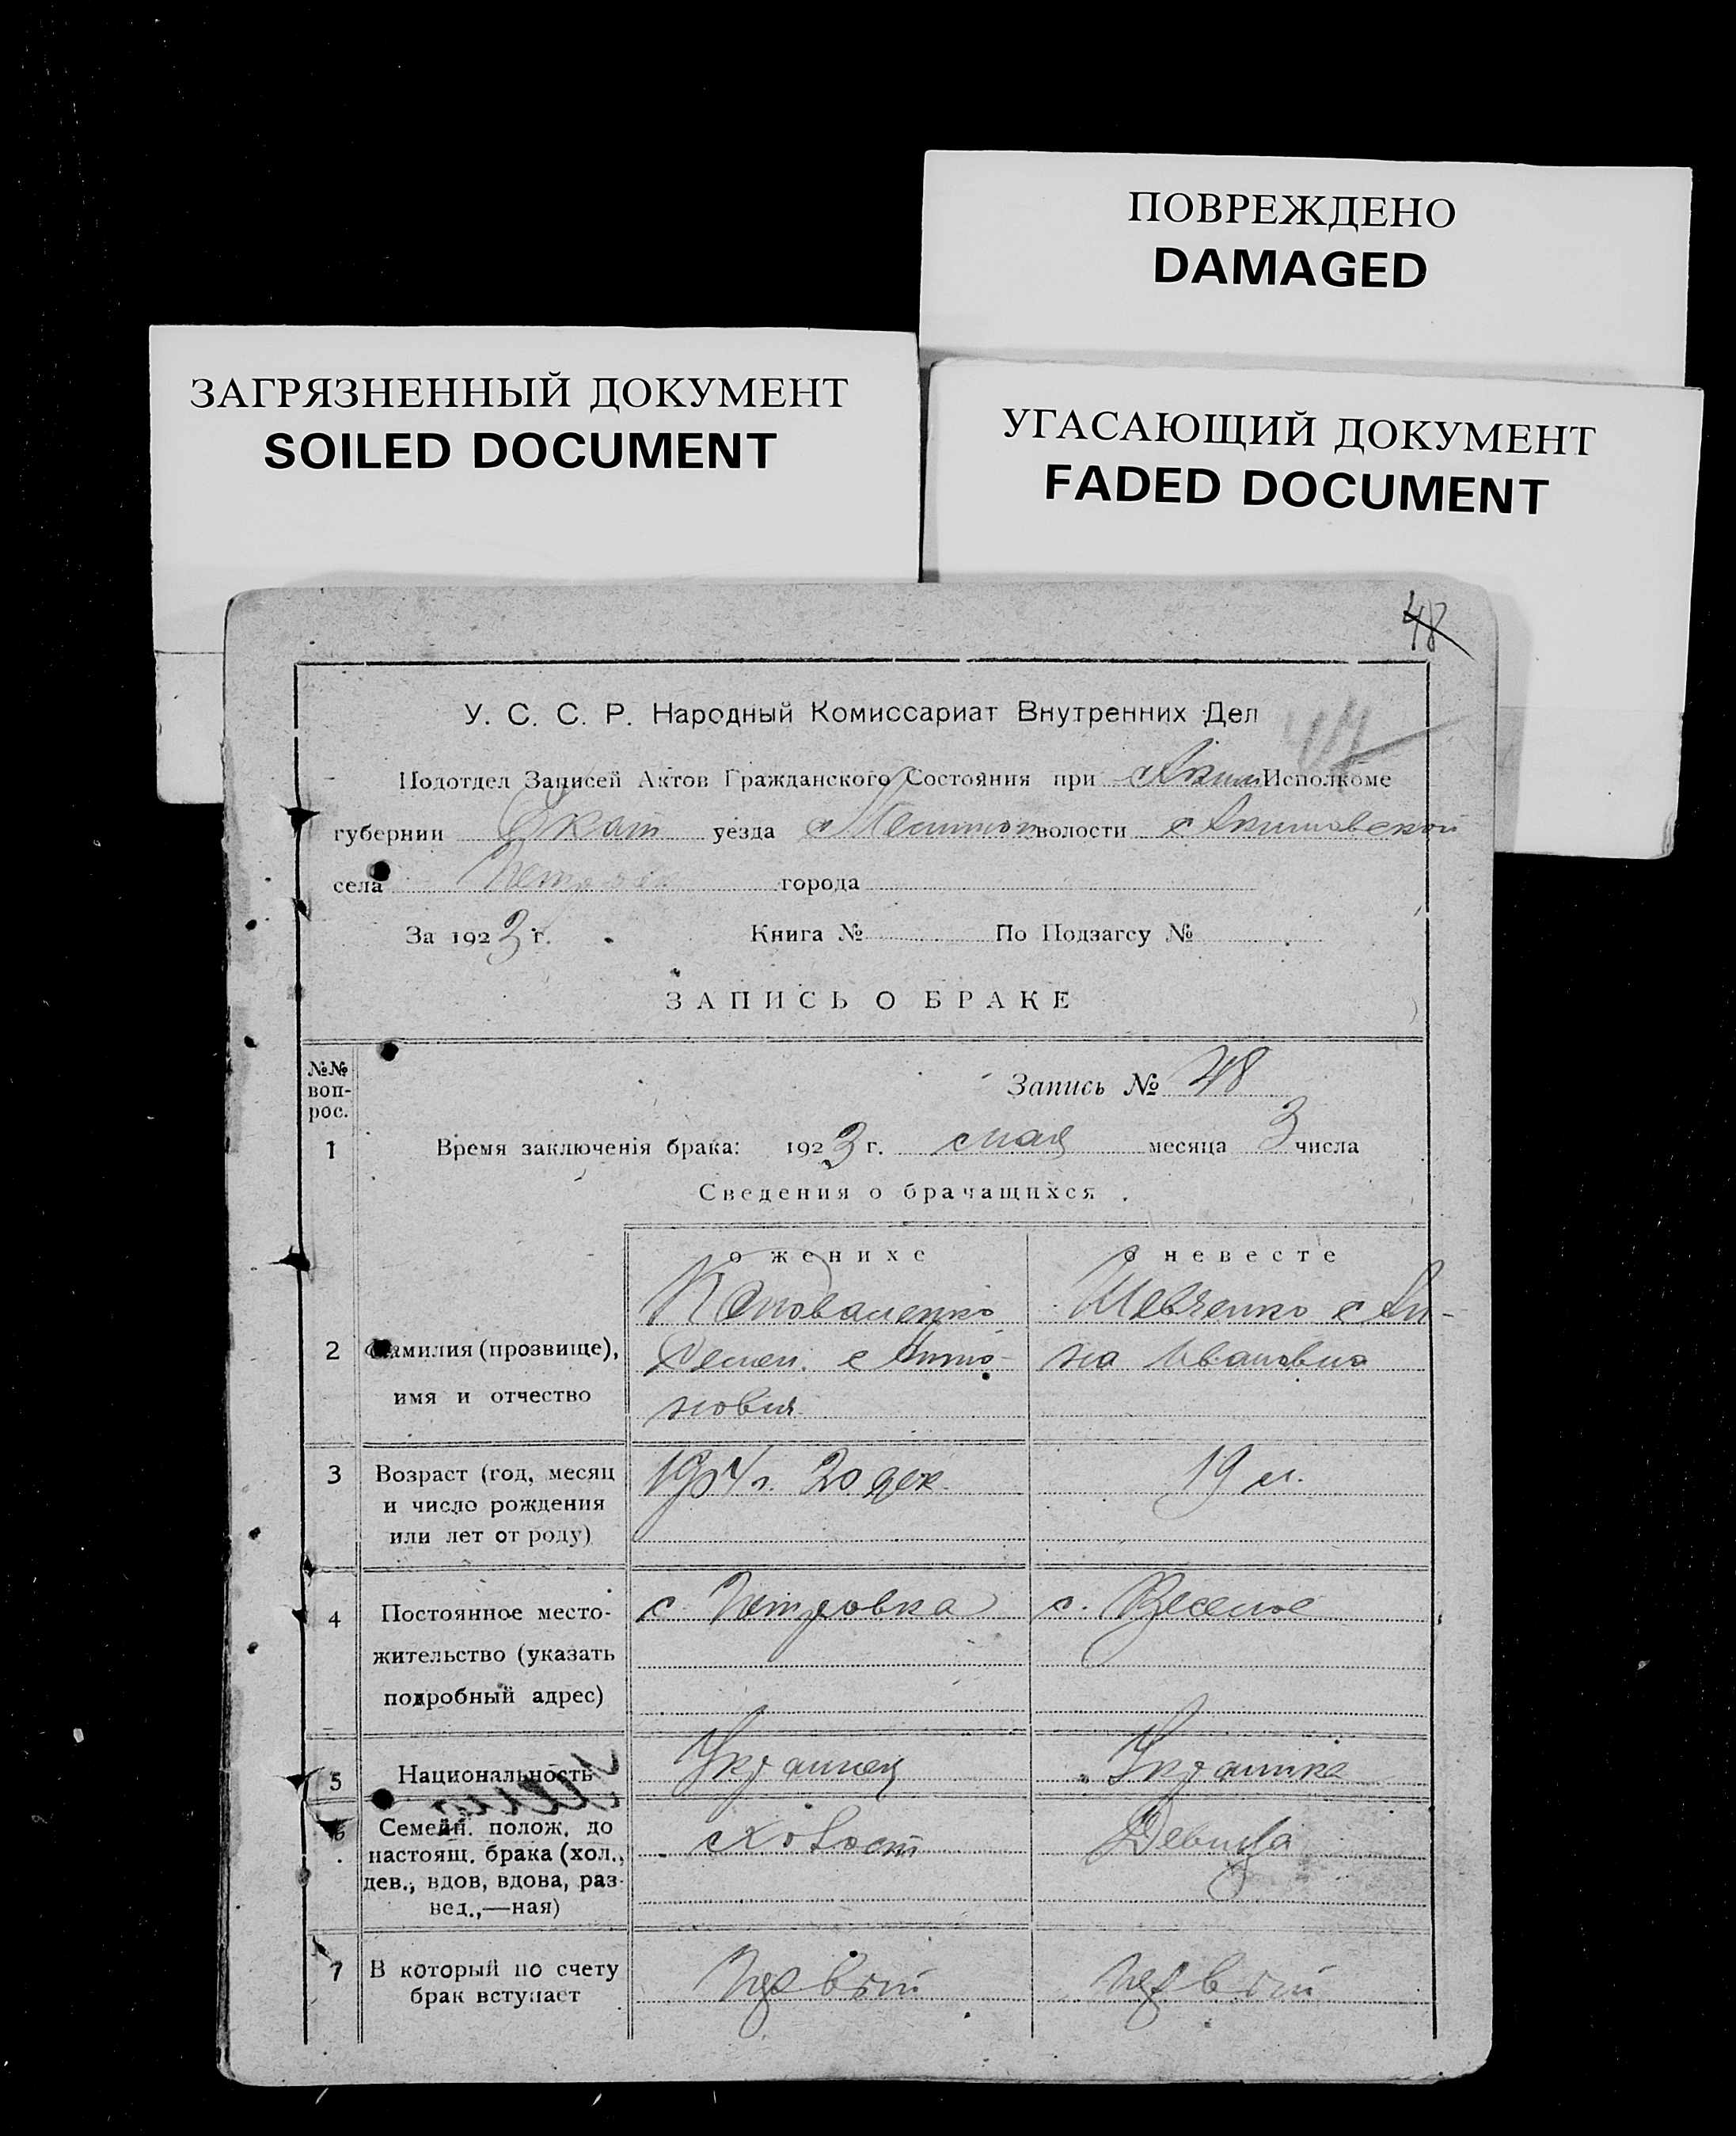 ПОВРЕЖДЕНО
DAMAGED
ЗАГРЯЗНЕННЫЙ ДОКУМЕНТ
SOILED DOCUMENT
УГАСАЮЩИЙ ДОКУМЕНТ
FADED DOCUMENT
48
У. С. С. Р. Народный Комиссариат Внутренних Дел
Подотдел Записей Актов Гражданского Состояния при Аким Исполкоме
губернии Екат уезда Мелитоп волости Акимовской
села города
За 1923 г. Книга № По Подзагсу №
ЗАПИСЬ О БРАКЕ
№№ воп-
рос.
Запись № 48
1 Время заключенія брака: 1923 г. мая месяца 3 числа
Сведения о брачащихся
о женихе о невесте
Коноваленко Шевченко Ан-
2 Фамилия (прозвище), Семен Анто- на Ивановна
имя и отчество нович
3 Возраст (год, месяц 1904 г. 20 дек. 19 л.
и число рождения
или лет от роду)
4 Постоянное место- с Петровка с. Веселое
жительство (указать
подробный адрес)
5 Национальность Украинец Украинка
6 Семейн. полож. до Холост Девица
настоящ. брака (хол.,
дев., вдов, вдова, раз-
вед.,—ная)
7 В который по счету первый первый
брак вступает